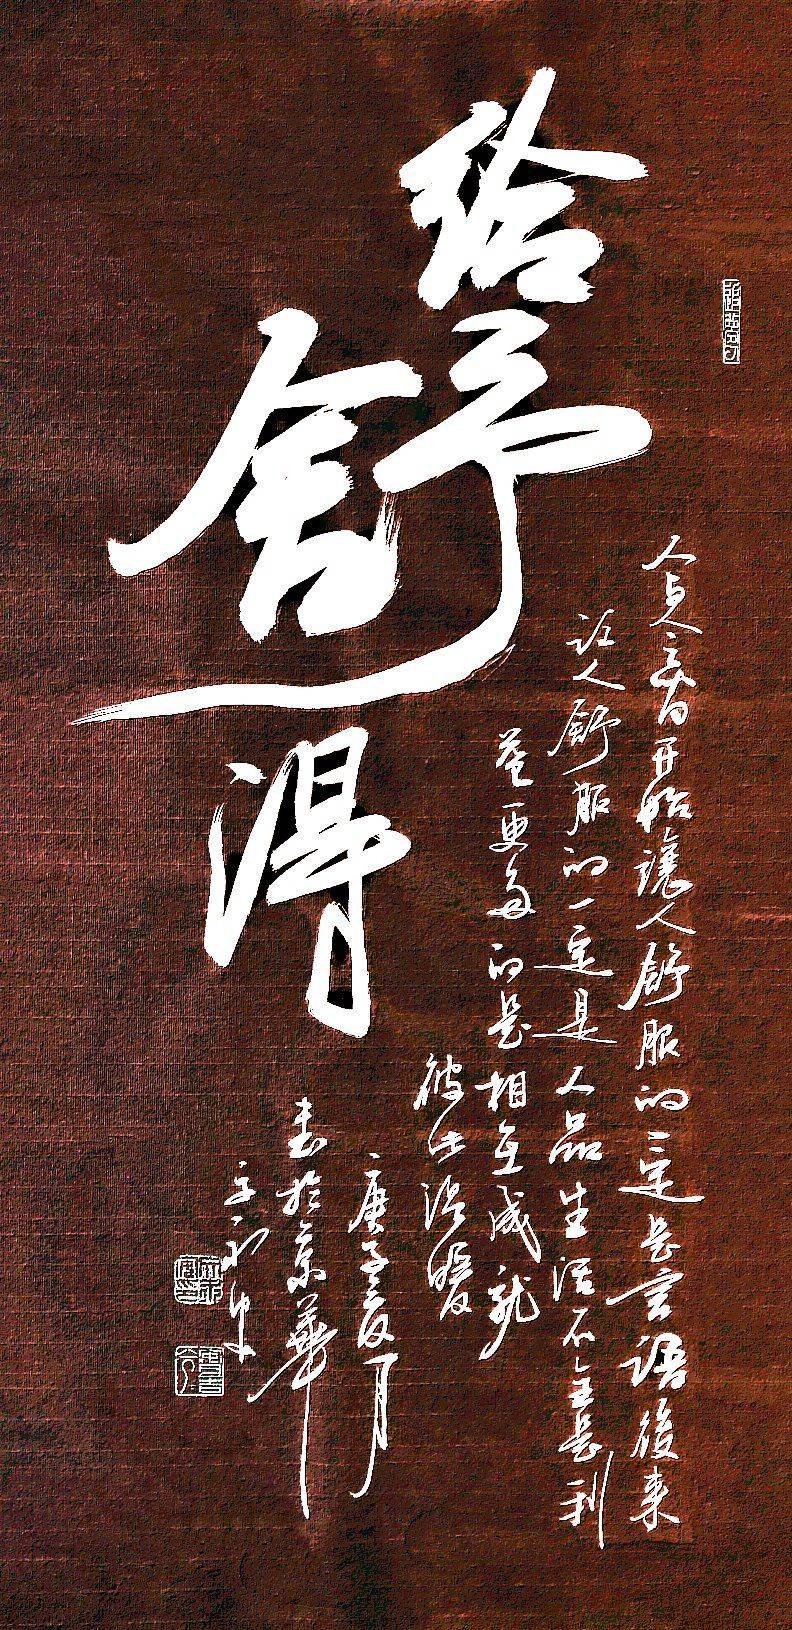 給予
舍得
人与人之间开始讓人舒服的一定是言語後来
让人舒服的一定是人品生活不全是利
益更多的是相互成就
彼此温暖
庚子夏月
书於京華